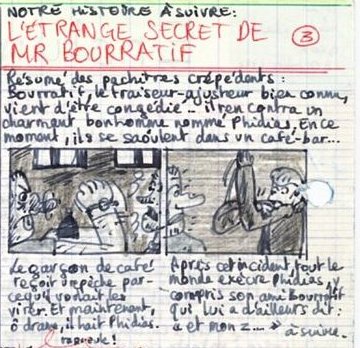 NOTRE HISTOIRE À SUIVRE:
L'ÉTRANGE SECRET DE
MR BOURRATIF
3
Résumé des pachitres crépédents :
Bourratif, le fraiseur-ajusteur bien connu,
vient d'être congédié... il rencontra un
charmant bonhomme nommé Phidias, En ce
moment, ils se saoûlent dans un café-bar...
Le garçon de café
reçoit        pêche par-
cequ'il voulait les
virer. Et maintenant,
ô drame, il hait Phidias.
Après cet incident, tout le
monde exècre Phidias, y
compris son ami Bourratif
qui lui a d'ailleurs dit :
« et mon z.... → à suivre.